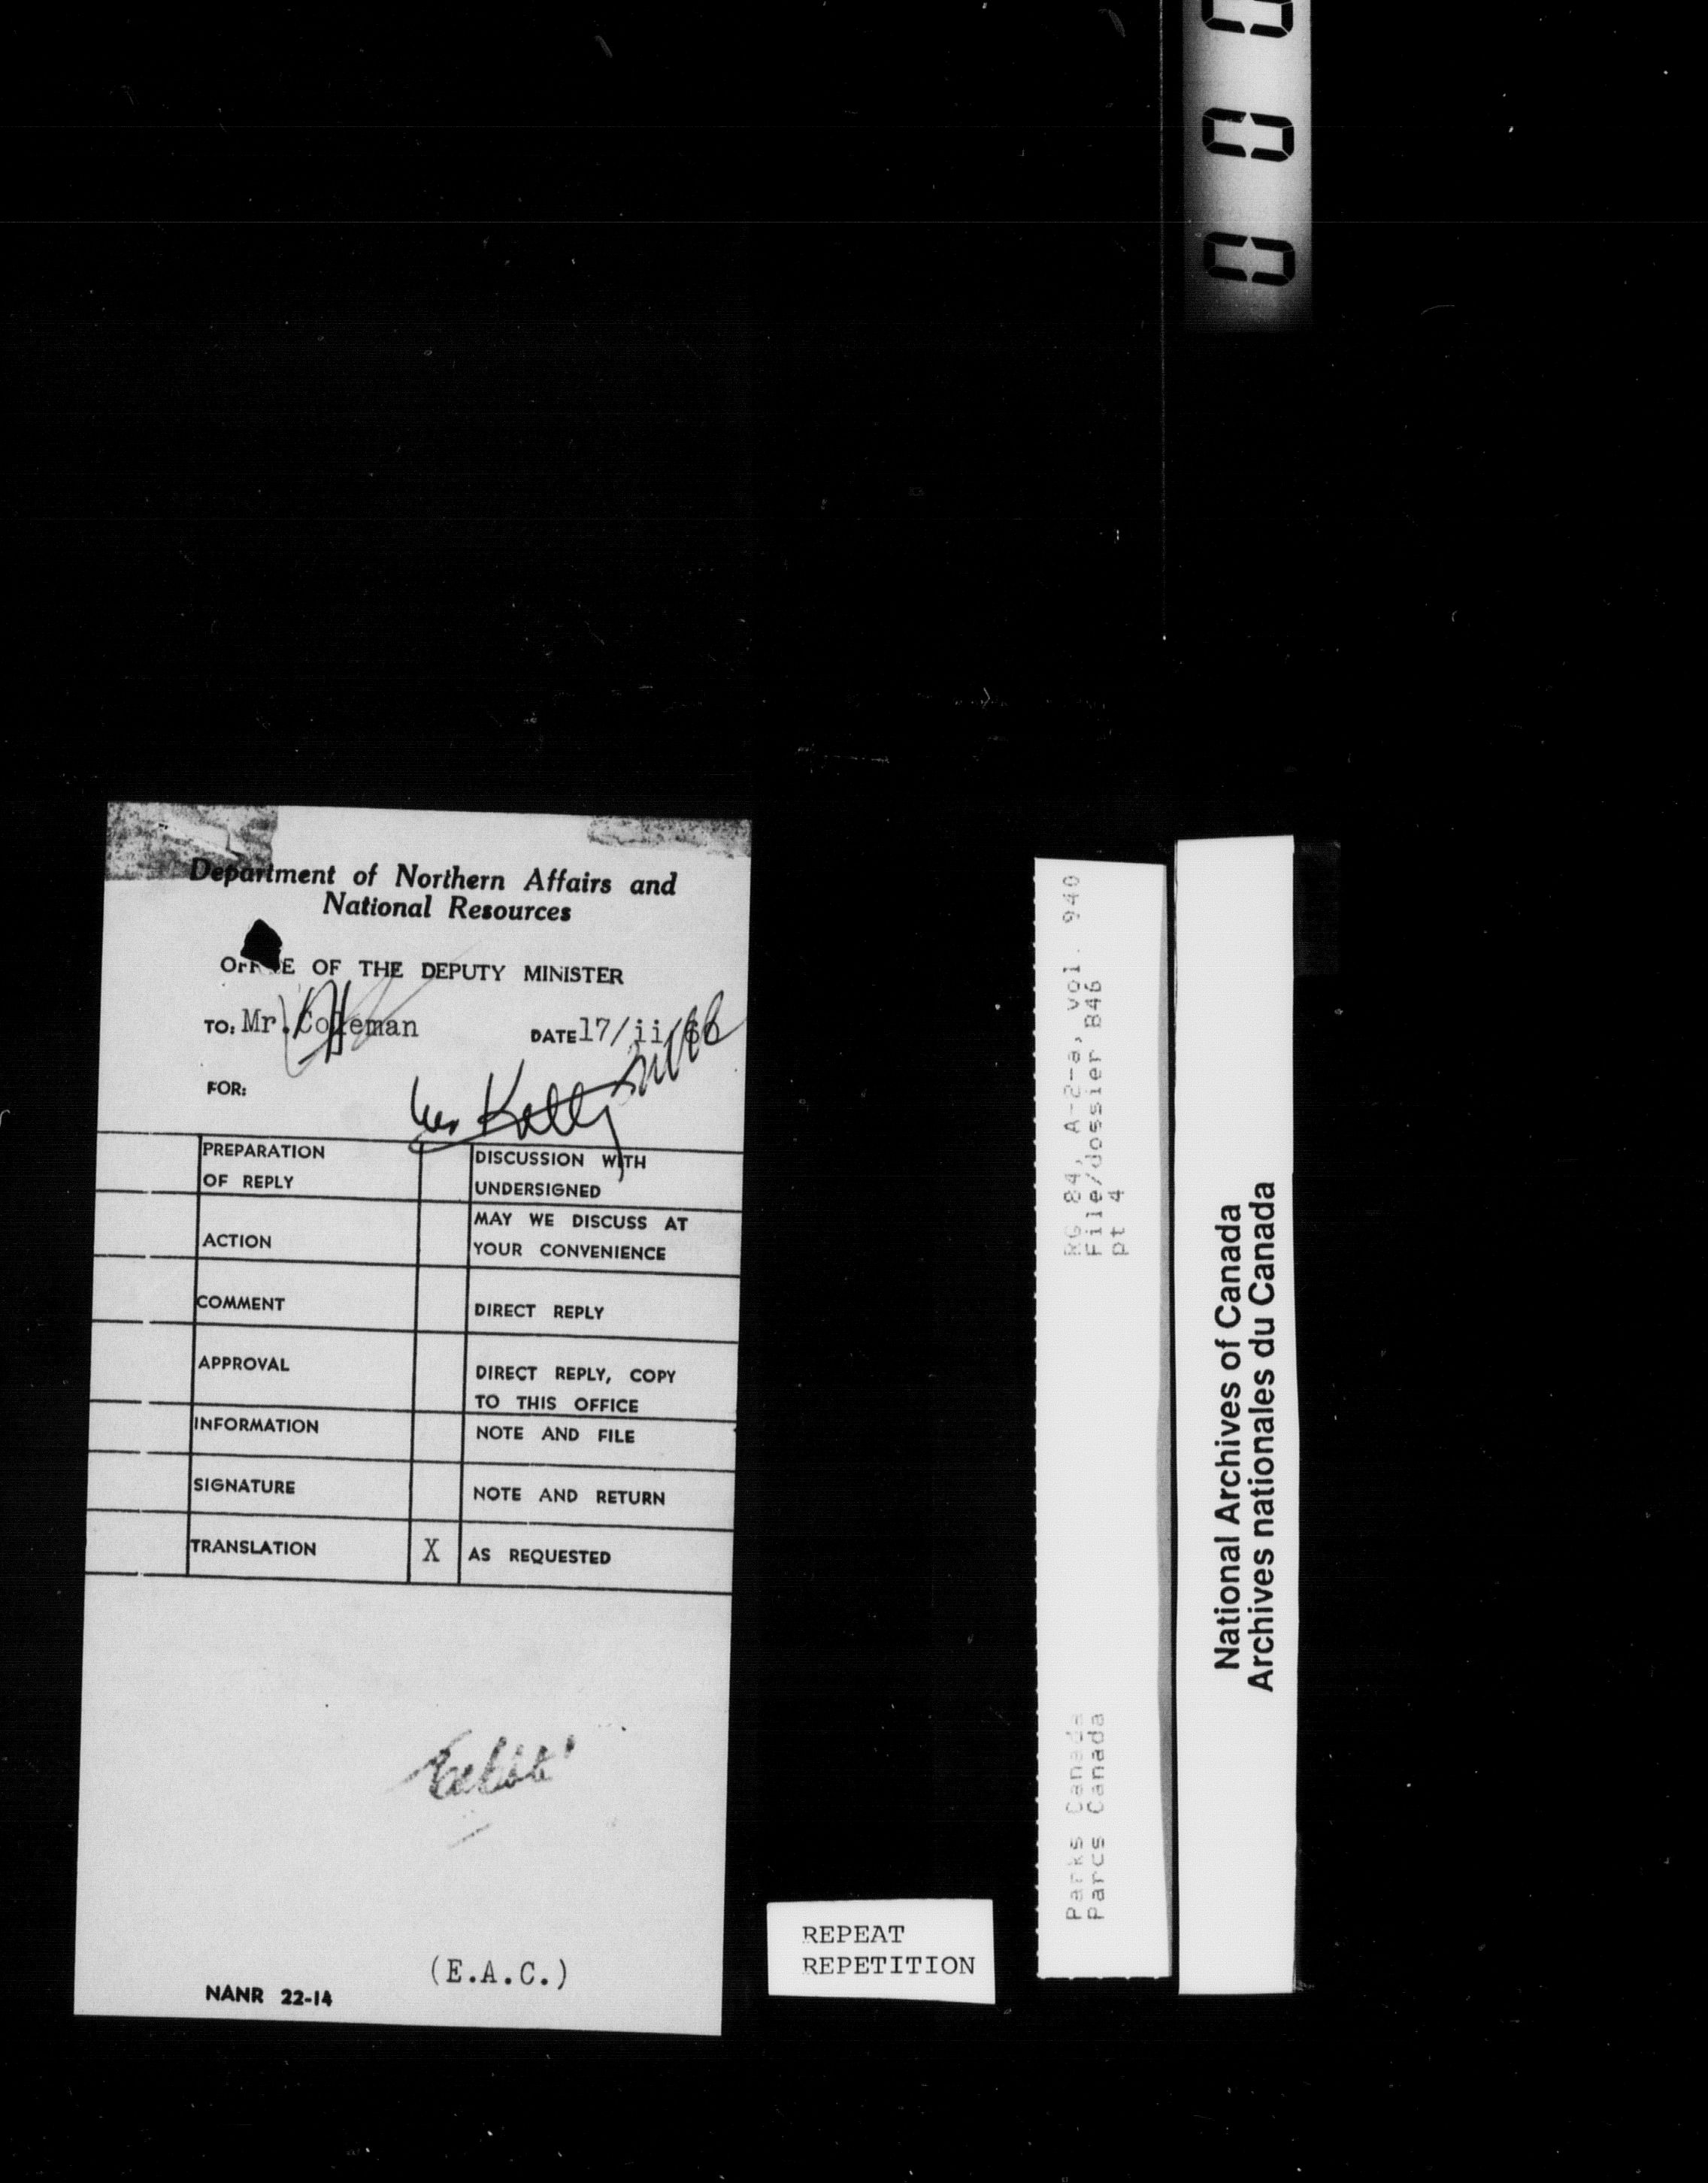 Department of Northern Affairs and
National Resources
OFFICE OF THE DEPUTY MINISTER
TO: Mr. Coleman
DATE 17/ii/66
Mr Kelly
FOR:
PREPARATION
OF REPLY
DISCUSSION WITH
UNDERSIGNED
ACTION
MAY WE DISCUSS AT
YOUR CONVENIENCE
COMMENT
DIRECT REPLY
APPROVAL
DIRECT REPLY, COPY
TO THIS OFFICE
INFORMATION
NOTE AND FILE
SIGNATURE
NOTE AND RETURN
TRANSLATION
X AS REQUESTED
(E.A.C.)
NANR 22-14
REPEAT
REPETITION
RG 84, A-2-a, vol. 940
File/dossier B46
pt 4
Parks Canada
Parcs Canada
National Archives of Canada
Archives nationales du Canada
0 0 0